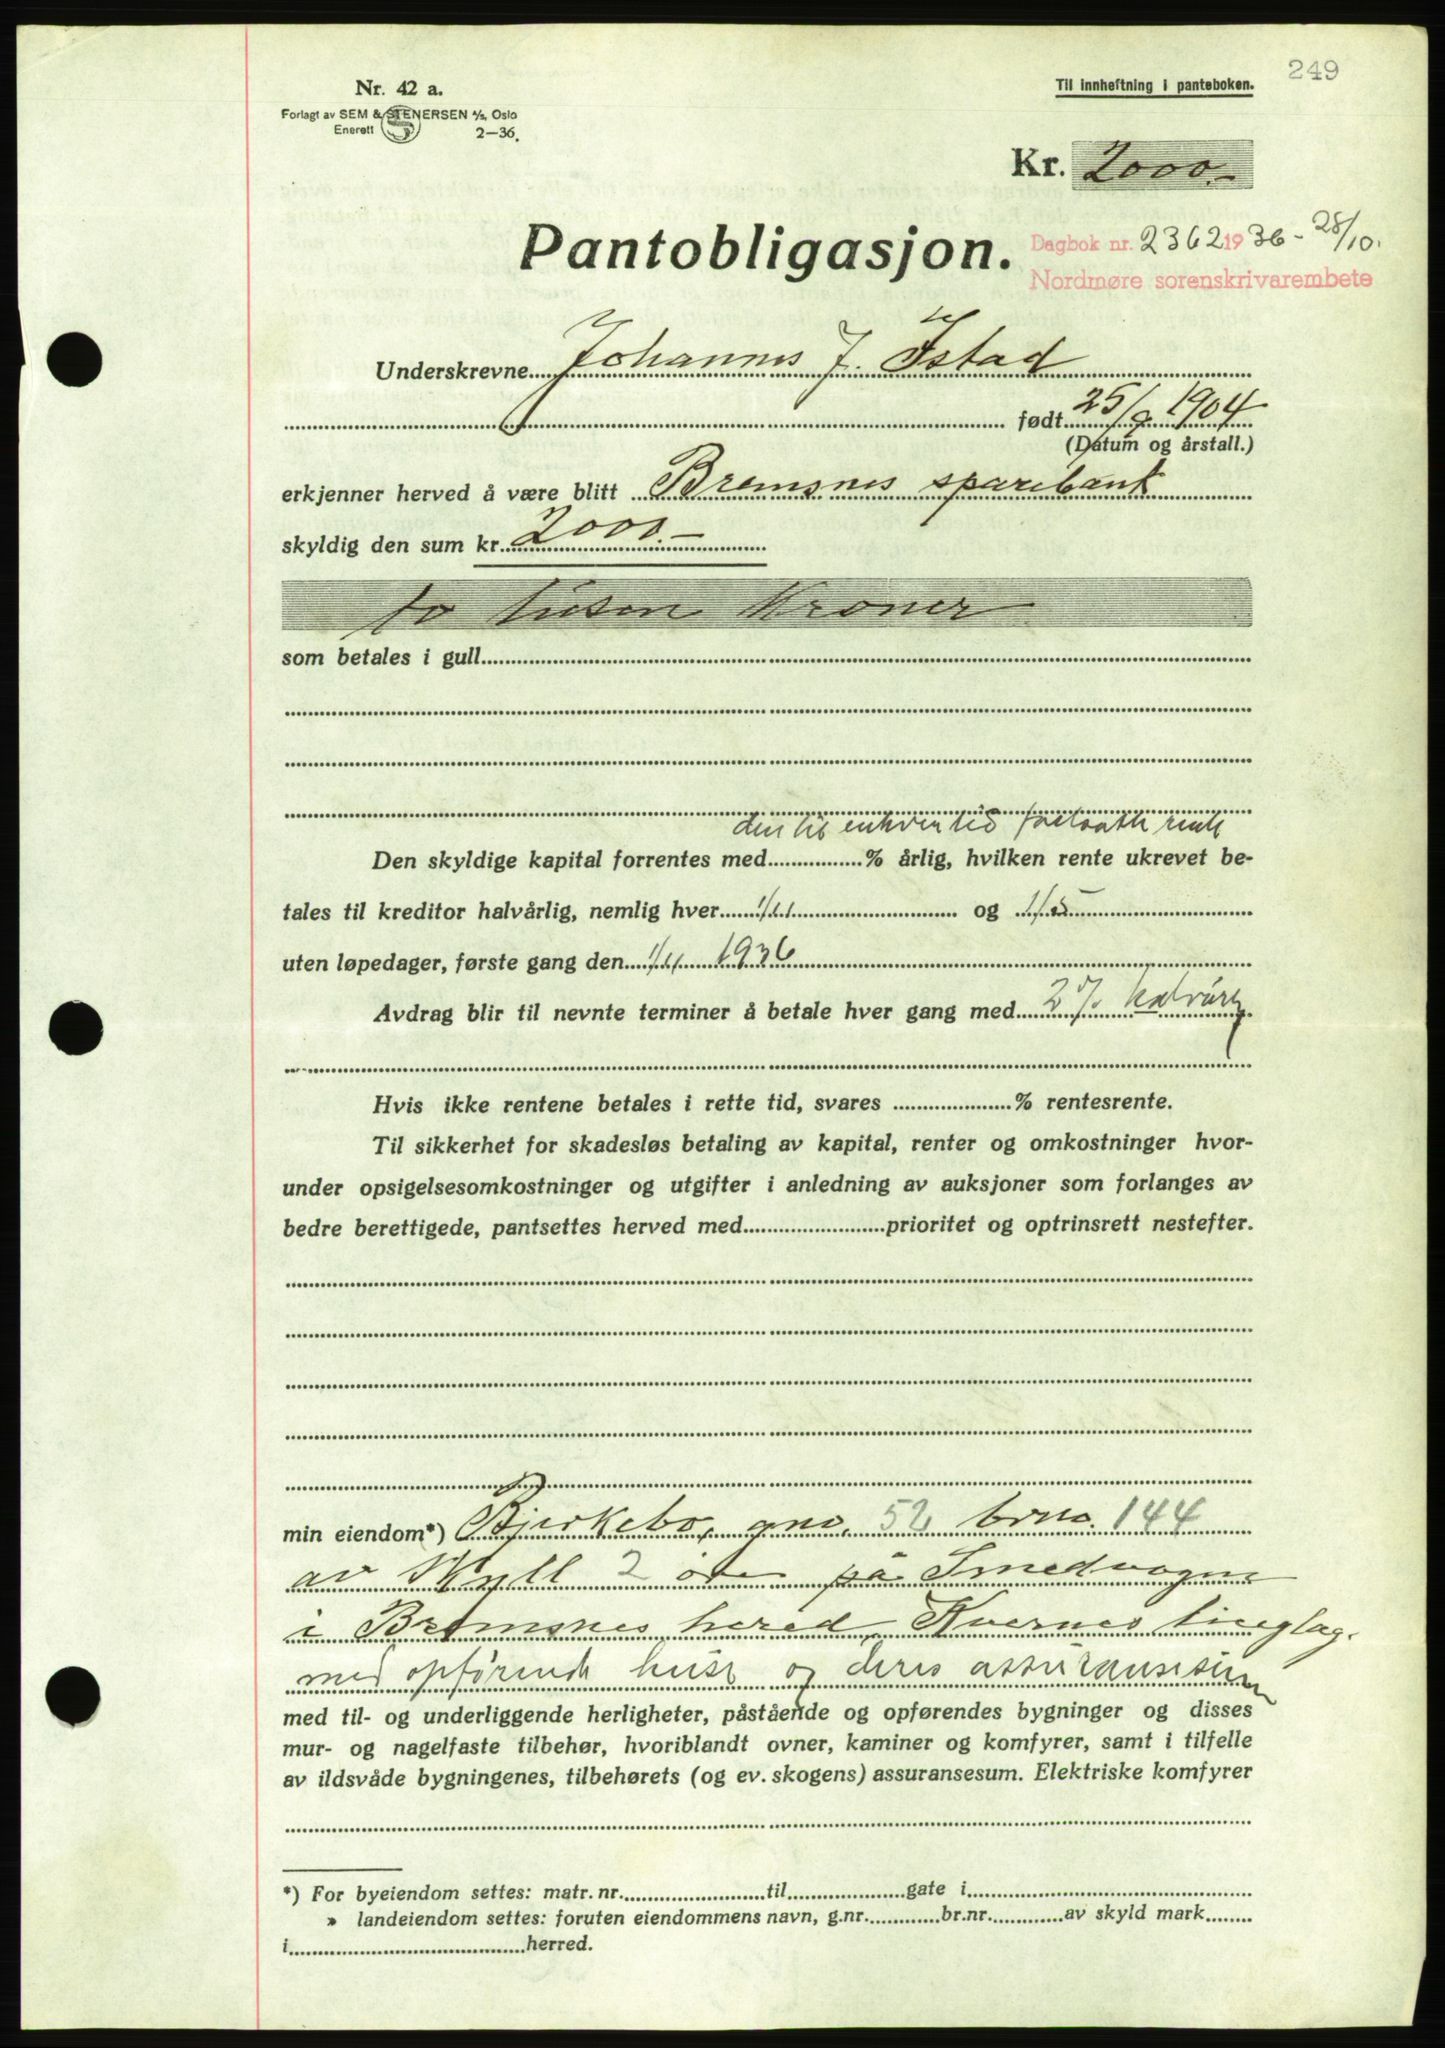 249
Nr. 42 a.
Til innheftning i panteboken.
Forlagt av SEM & STENERSEN A/S, Oslo
Enerett 2—36.
Kr. 2000.—
Pantobligasjon.
Dagbok nr. 2362 1936 - 28/10.
Nordmøre sorenskrivarembete
Underskrevne Johannes J. Istad
født 25/9 1904
(Datum og årstall.)
erkjenner herved å være blitt Bremsnes sparebank
skyldig den sum kr. 2000.—
to tusen kroner
som betales i gull
den til enhver tid fastsatte rente
Den skyldige kapital forrentes med % årlig, hvilken rente ukrevet be-
tales til kreditor halvårlig, nemlig hver 1/11 og 1/5
uten løpedager, første gang den 1/11 1936
Avdrag blir til nevnte terminer å betale hver gang med 2 % halvårlig
Hvis ikke rentene betales i rette tid, svares % rentesrente.
Til sikkerhet for skadesløs betaling av kapital, renter og omkostninger hvor-
under opsigelsesomkostninger og utgifter i anledning av auksjoner som forlanges av
bedre berettigede, pantsettes herved med prioritet og optrinsrett nestefter.
min eiendom*) Bjerkebo, gno. 52 brno. 144
av skyll 2 øre på Smedvågne
i Bremsnes hered, Kvernes tinglag.
med opførende huse og deres assuransesum
med til- og underliggende herligheter, påstående og opførendes bygninger og disses
mur- og nagelfaste tilbehør, hvoriblandt ovner, kaminer og komfyrer, samt i tilfelle
av ildsvåde bygningenes, tilbehørets (og ev. skogens) assuransesum. Elektriske komfyrer
*) For byeiendom settes: matr. nr. til gate i
» landeiendom settes: foruten eiendommens navn, g.nr. br.nr. av skyld mark
i herred.